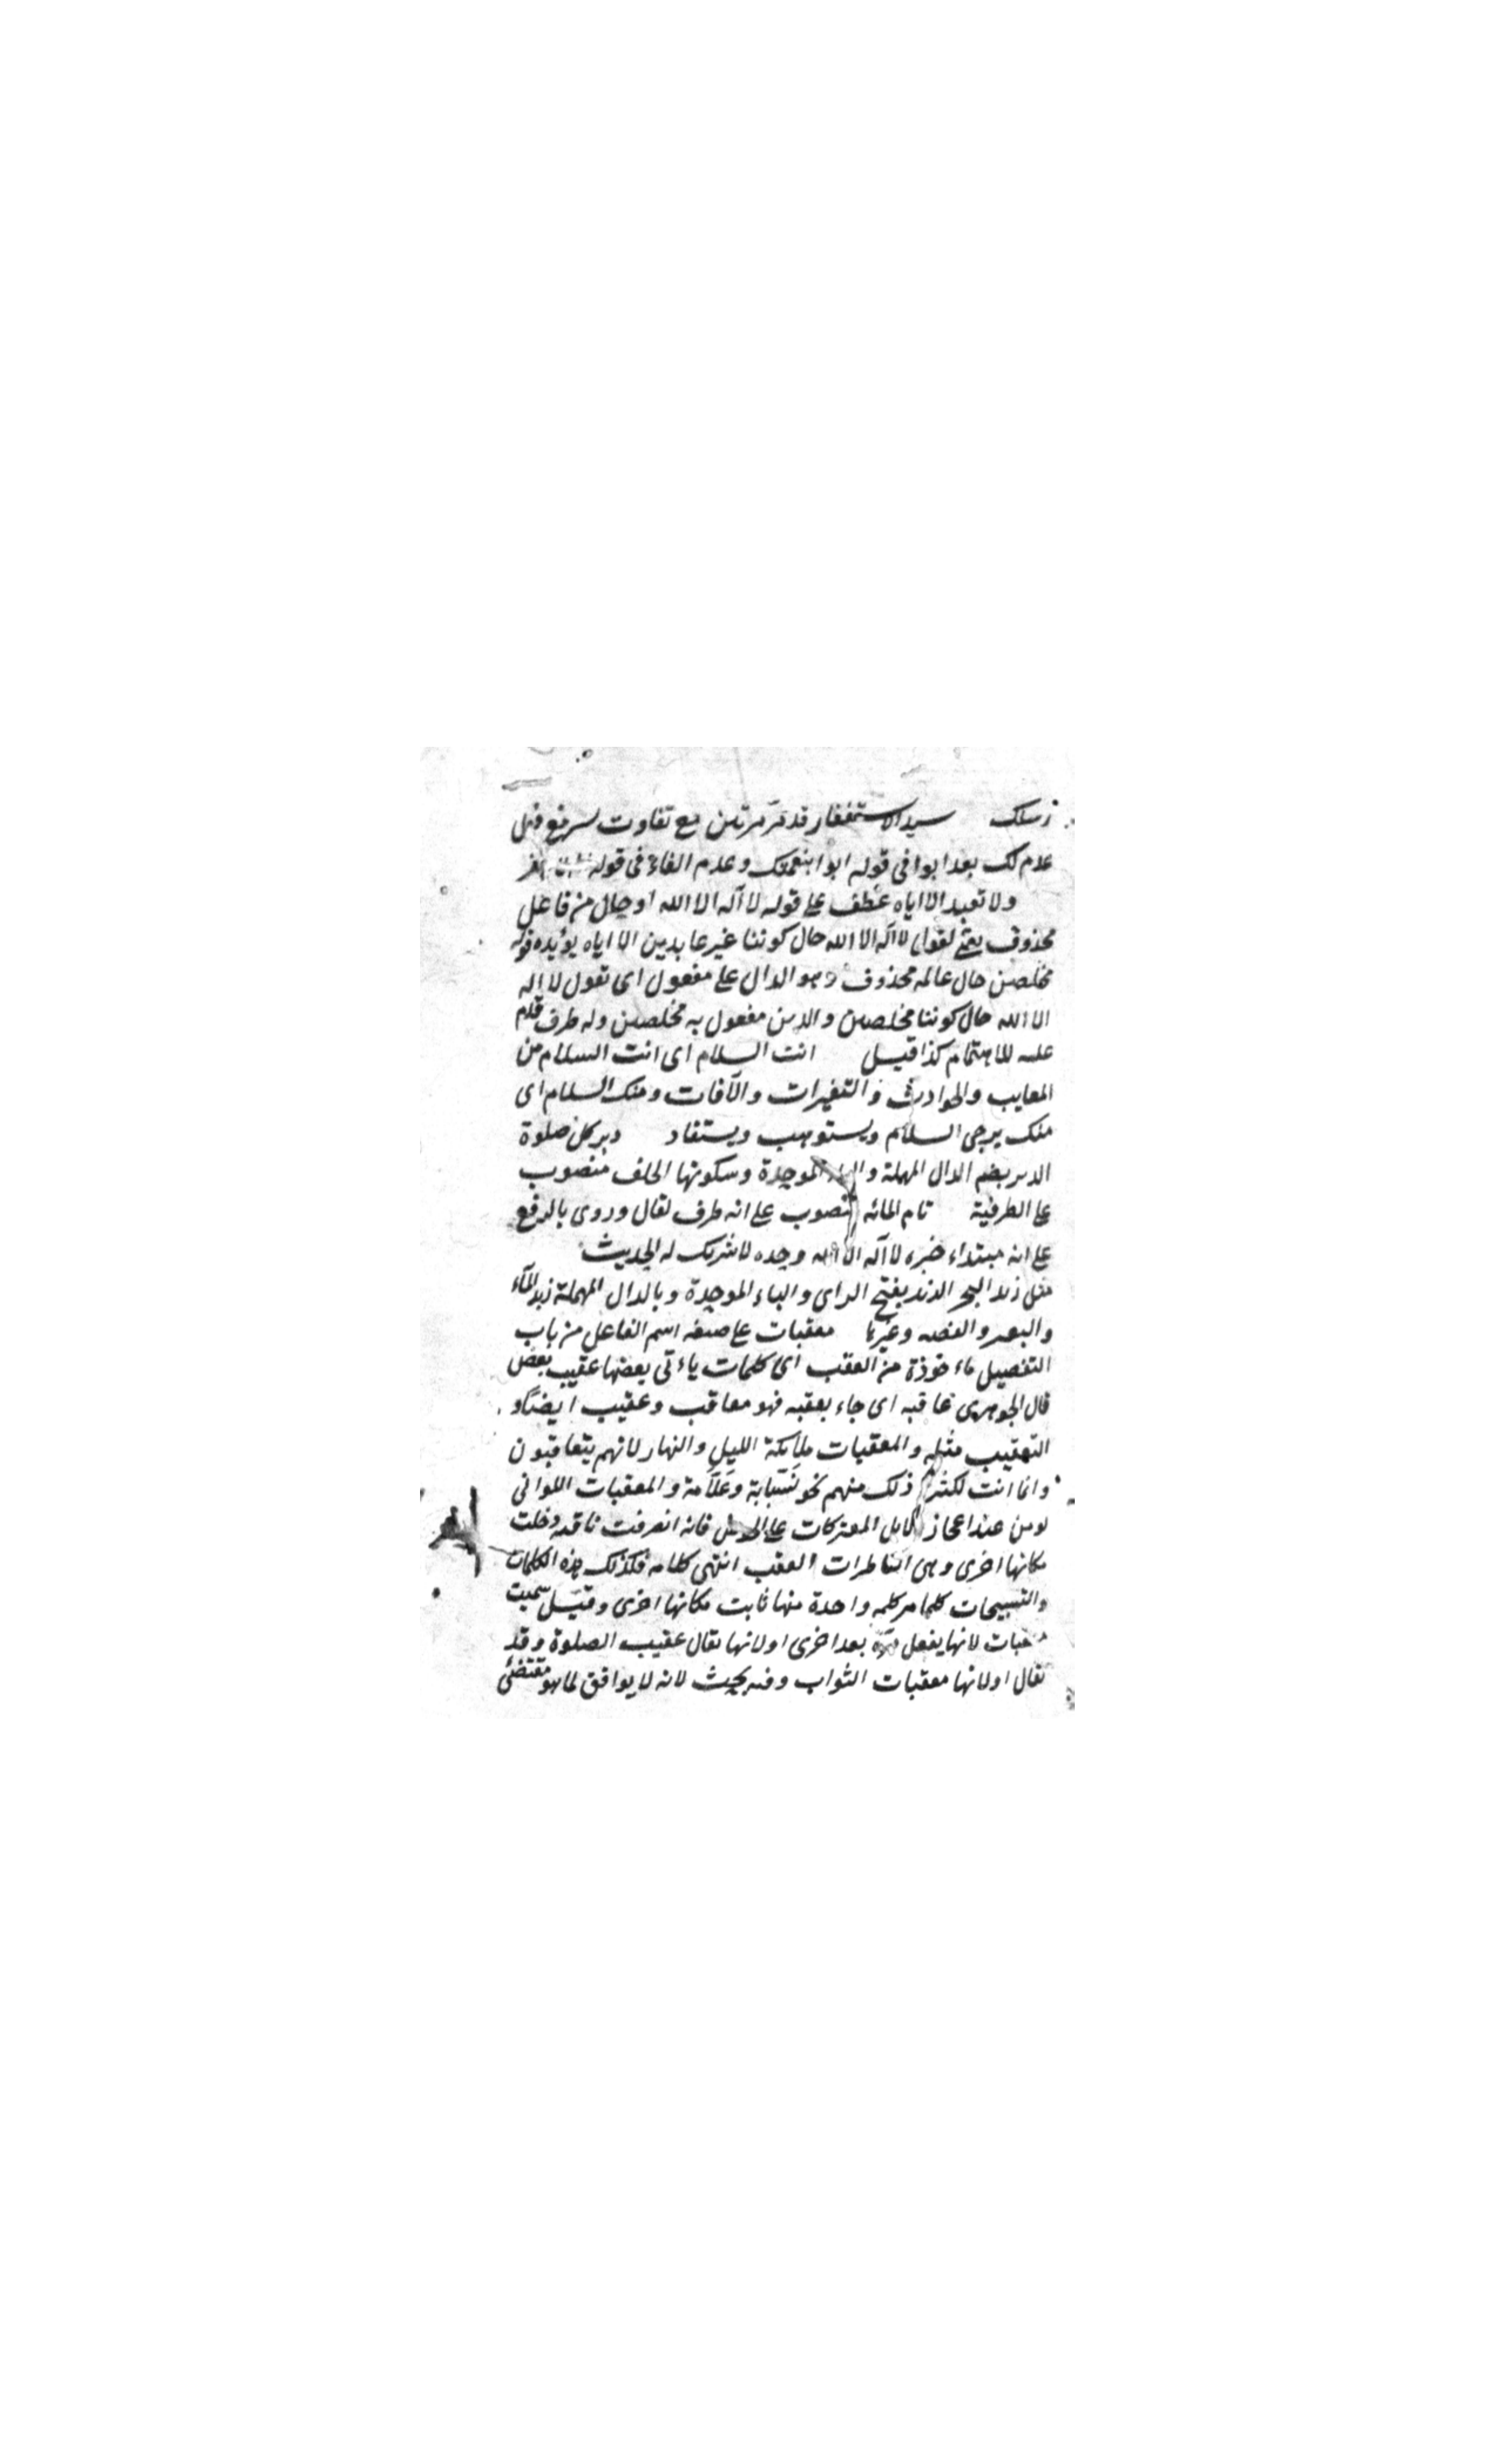 سيد الاستغفار قد مر مرتين مع تفاوت
عدم لك بعد ابوا فى قوله ابوا بنعمتك وعدم الفاء فى قوله
ولا نعبد الا اياه عطف على قوله لا آله الا الله او حال من فاعل
محذوف يعنى نقول لا آله الا الله حال كوننا غير عابدين الا اياه يؤيده قوله
مخلصين حال عامله محذوف وهو الدال على مفعول اى نقول لا اله
الا الله حال كوننا مخلصين والدين مفعول به مخلصين وله ظرف قدم
عليه للاهتمام كذا قيل انت السلام اى انت السلام من
المعايب والحوادث والتغيرات والآفات ومنك السلام اى
منك يرجى السلام ويستوهب ويستفاد دبر كل صلوة
الدبر بضم الدال المهملة والباء الموحدة وسكونها الخلف منصوب
على الظرفية تمام المائه منصوب على انه ظرف لقال وروى بالرفع
على انه مبتداء خبره لا آله الا الله وحده لا شريك له الحديث
مثل زبد البحر الزبد بفتح الزاى والباء الموحدة وبالدال المهملة زبد الماء
والبعير والفضه وغيرها معقبات على صيغه اسم الفاعل من باب
التفعيل ماءخوذة من العقب اى كلمات ياءتى بعضها عقيب بعض
قال الجوهرى عاقبه اى جاء بعقبه فهو معاقب وعقيب ايضا و
التعقيب مثله والمعقبات ملايكة الليل والنهار لانهم يتعاقبون
وانما انث لكثرة ذلك منهم نحو نسابة وعلامة والمعقبات اللواتى
يقمن عند اعجاز الابل المعتركات على الحوض فاذا انصرفت ناقه دخلت
مكانها اخرى وهى الناظرات العقب انتهى كلامه فكذلك هذه الكلمات
والتسبيحات كلما مر كلمه واحدة منها نابت مكانها اخرى وقيل سميت
معقبات لانها يفعل مرة بعد اخرى او لانها تقال عقيب الصلوة وقد
يقال او لانها معقبات الثواب وفيه بحث لانه لا يوافق لما هو مقتضى